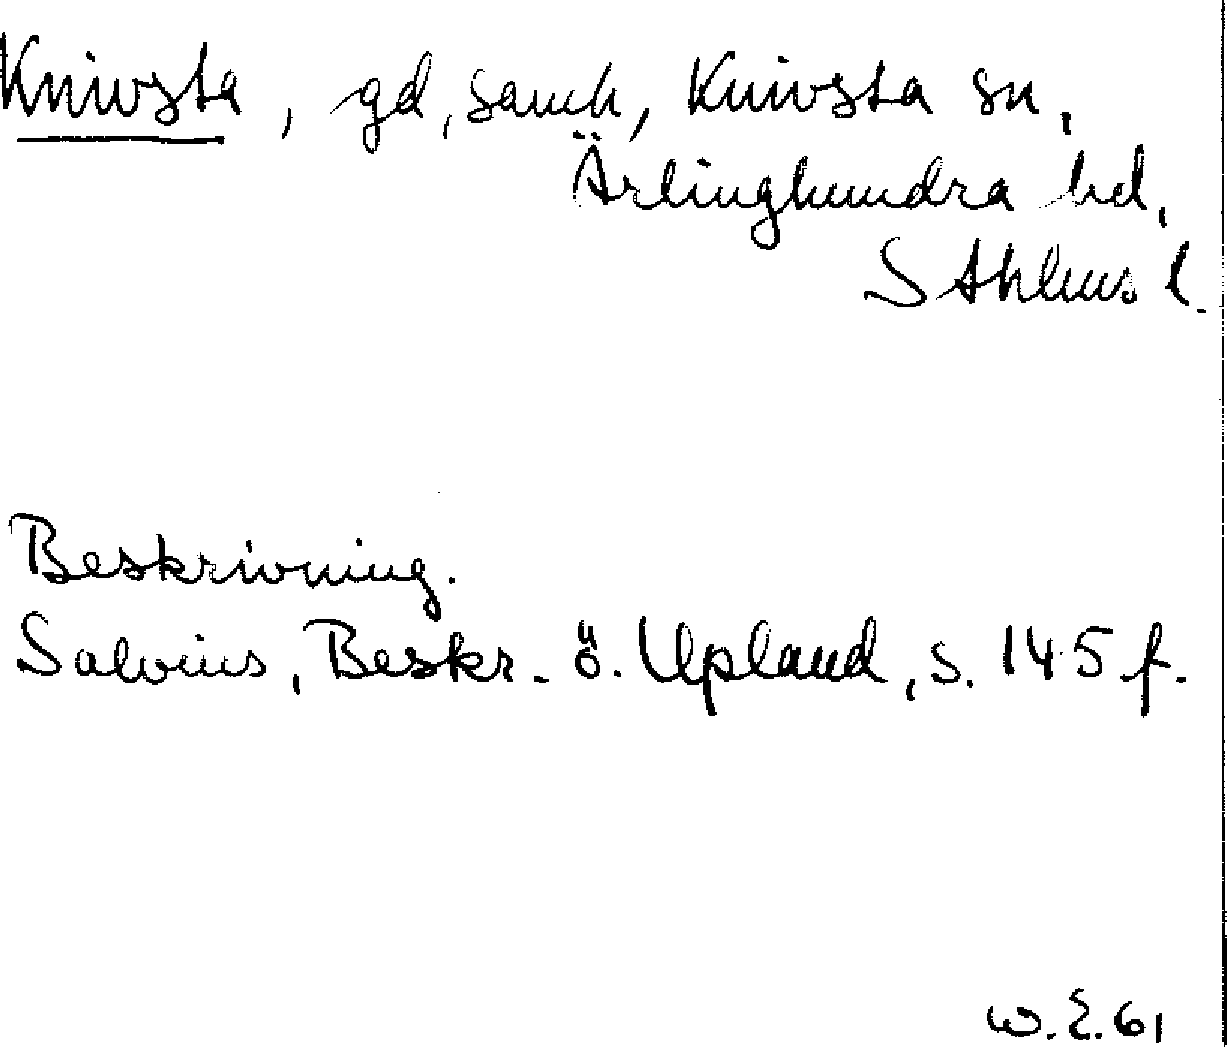 Knivsta, gd, samh, Knivsta sn,
Ärlinghundra hd,
Sthlms l.
Beskrivning.
Salvius, Beskr. ö. Upland, s. 145 f.
W. E. 61